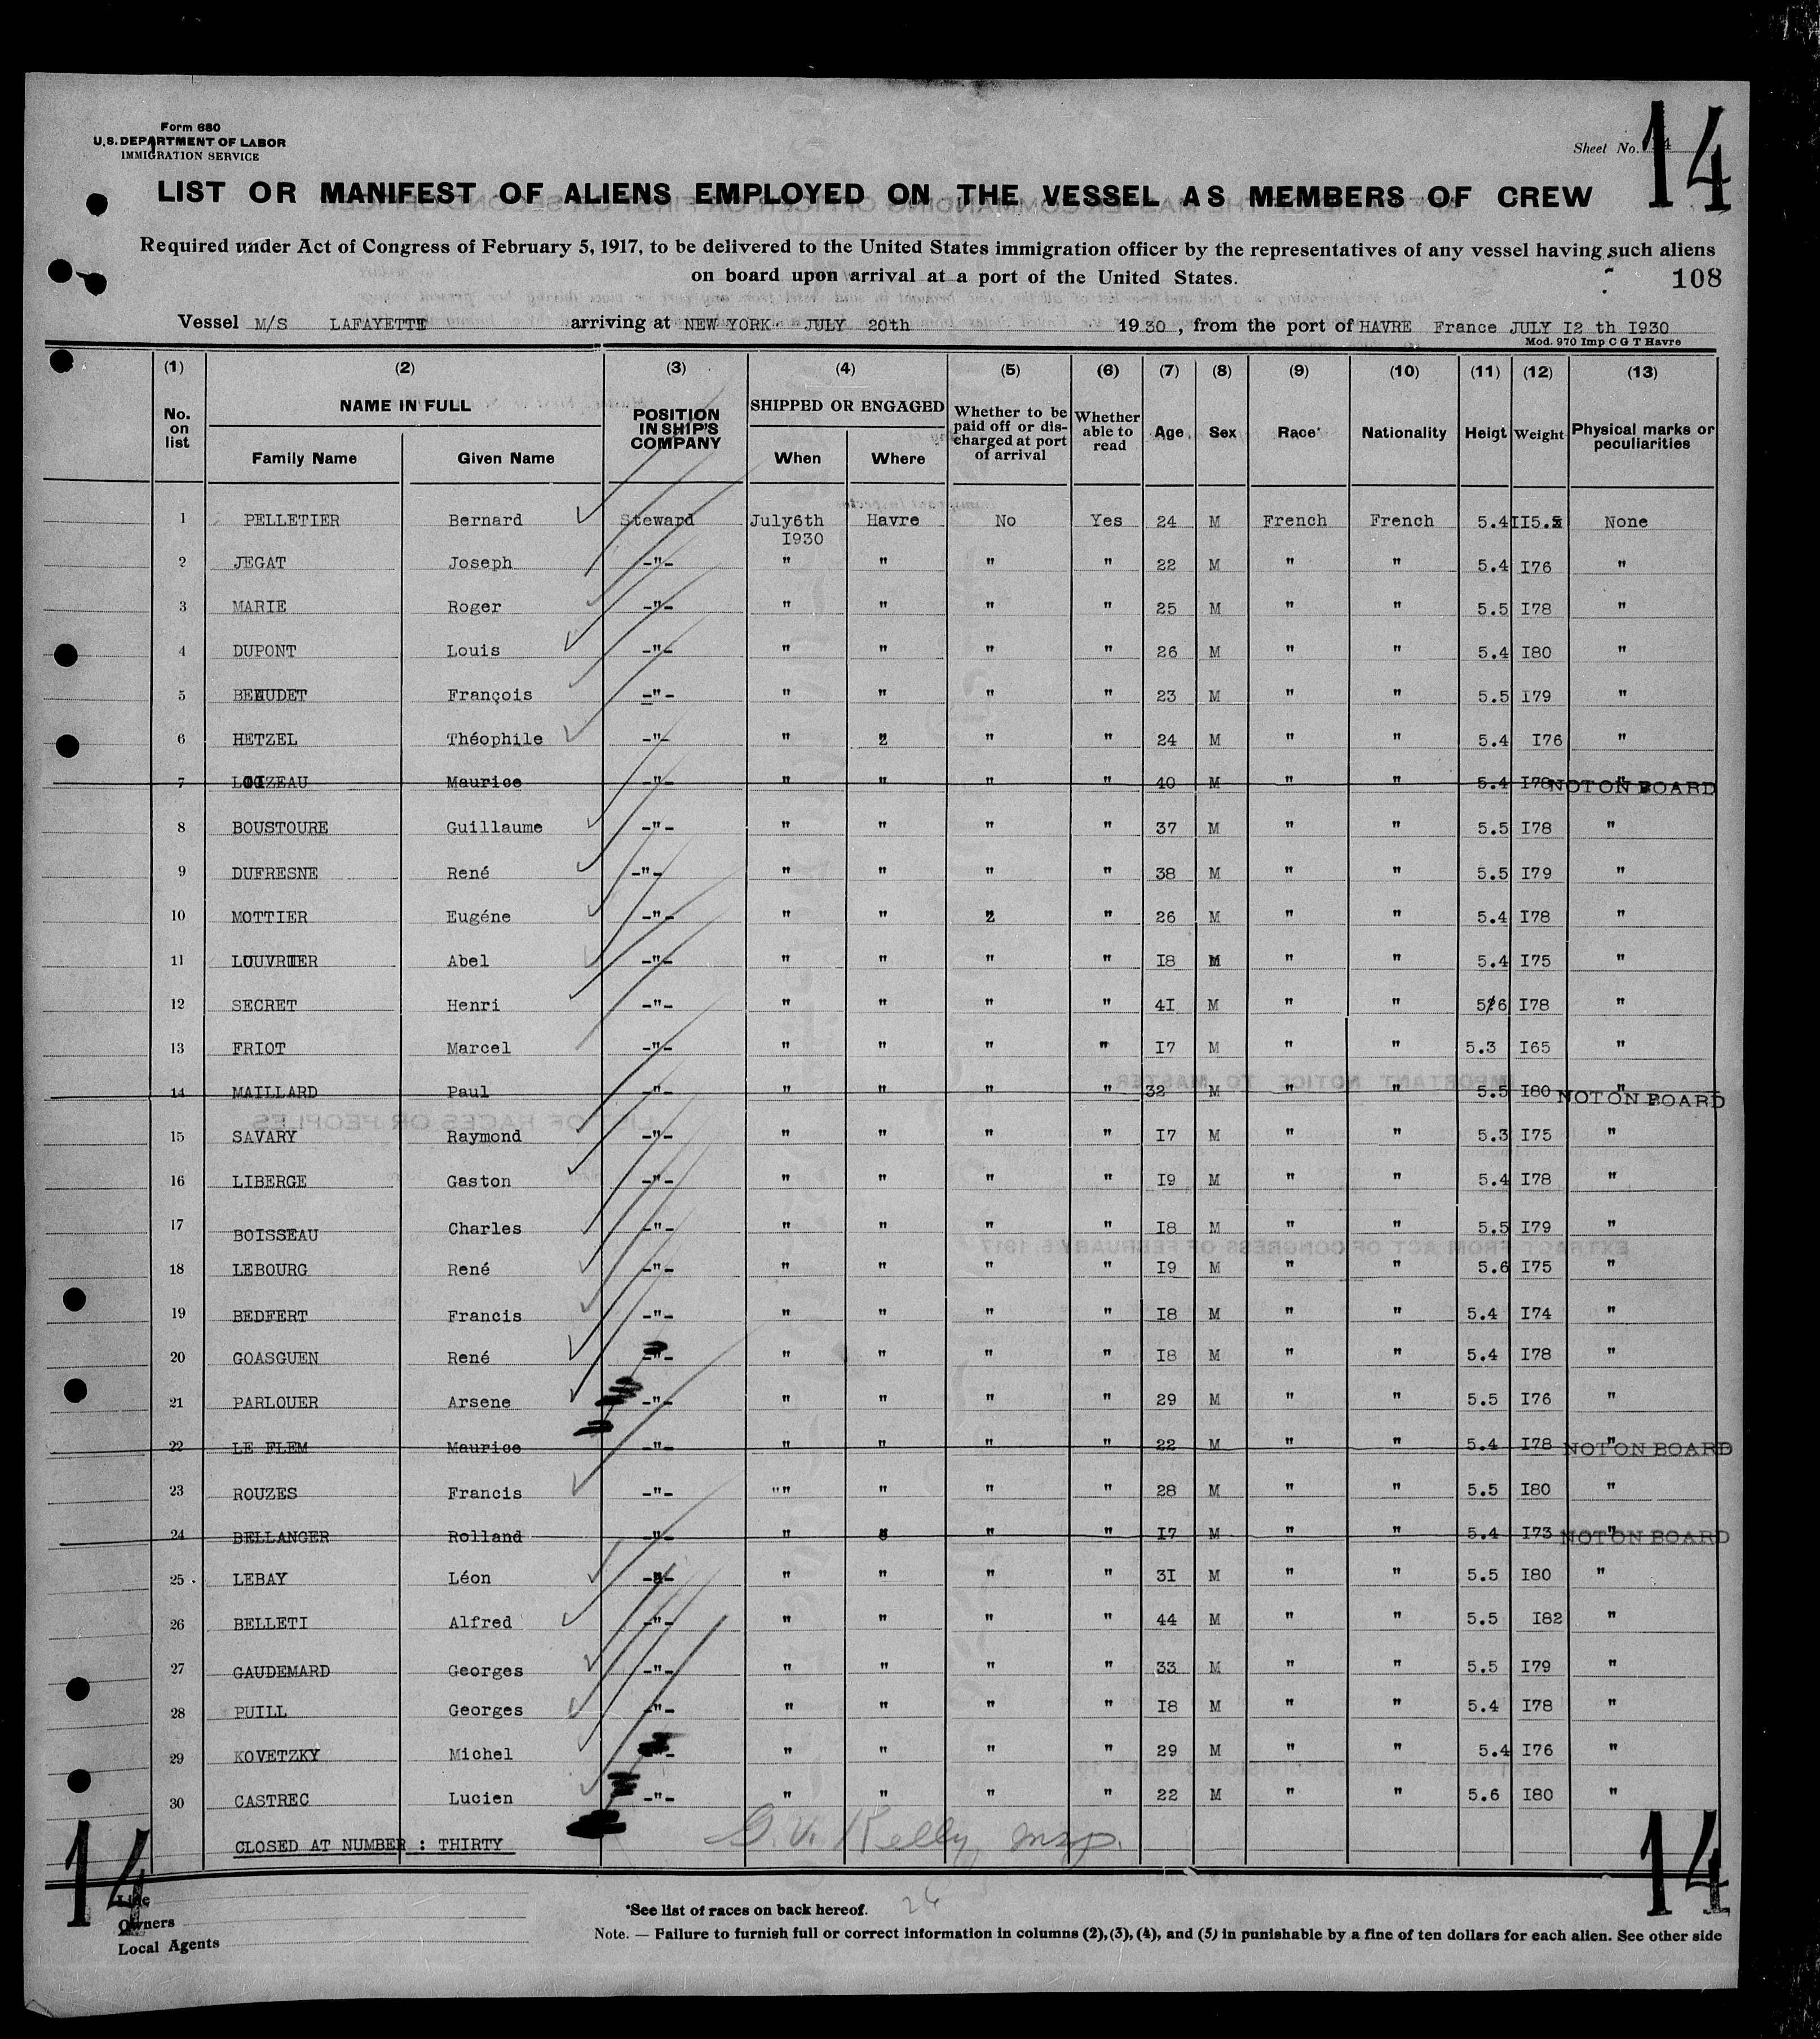 Form 680
U.S. DEPARTMENT OF LABOR
IMMIGRATION SERVICE
Sheet No. 14
14
LIST OR MANIFEST OF ALIENS EMPLOYED ON THE VESSEL AS MEMBERS OF CREW
Required under Act of Congress of February 5, 1917, to be delivered to the United States immigration officer by the representatives of any vessel having such aliens
on board upon arrival at a port of the United States.
108
Vessel M/S LAFAYETTE arriving at NEW YORK JULY 20th 1930, from the port of HAVRE France JULY I2 th I930
Mod. 970 Imp C G T Havre
(1) (2) (3) (4) (5) (6) (7) (8) (9) (10) (11) (12) (13)
No. on list NAME IN FULL Family Name Given Name POSITION IN SHIP'S COMPANY SHIPPED OR ENGAGED When Where Whether to be paid off or discharged at port of arrival Whether able to read Age Sex Race* Nationality Heigt Weight Physical marks or peculiarities
1 PELLETIER Bernard Steward July6th I930 Havre No Yes 24 M French French 5.4 II5.5 None
2 JEGAT Joseph -"- " " " " 22 M " " 5.4 I76 "
3 MARIE Roger -"- " " " " 25 M " " 5.5 I78 "
4 DUPONT Louis -"- " " " " 26 M " " 5.4 I80 "
5 BEAUDET François -"- " " " " 23 M " " 5.5 I79 "
6 HETZEL Théophile -"- " " " " 24 M " " 5.4 I76 "
7 LOIZEAU Maurice -"- " " " " 40 M " " 5.4 I78 " NOT ON BOARD
8 BOUSTOURE Guillaume -"- " " " " 37 M " " 5.5 I78 "
9 DUFRESNE René -"- " " " " 38 M " " 5.5 I79 "
10 MOTTIER Eugéne -"- " " " " 26 M " " 5.4 I78 "
11 LOUVRIER Abel -"- " " " " I8 M " " 5.4 I75 "
12 SECRET Henri -"- " " " " 4I M " " 5.6 I78 "
13 FRIOT Marcel -"- " " " " I7 M " " 5.3 I65 "
14 MAILLARD Paul -"- " " " " 32 M " " 5.5 I80 " NOT ON BOARD
15 SAVARY Raymond -"- " " " " I7 M " " 5.3 I75 "
16 LIBERGE Gaston -"- " " " " I9 M " " 5.4 I78 "
17 BOISSEAU Charles -"- " " " " I8 M " " 5.5 I79 "
18 LEBOURG René -"- " " " " I9 M " " 5.6 I75 "
19 BEDFERT Francis -"- " " " " I8 M " " 5.4 I74 "
20 GOASGUEN René -"- " " " " I8 M " " 5.4 I78 "
21 PARLOUER Arsene -"- " " " " 29 M " " 5.5 I76 "
22 LE FLEM Maurice -"- " " " " 22 M " " 5.4 I78 " NOT ON BOARD
23 ROUZES Francis -"- "" " " " 28 M " " 5.5 I80 "
24 BELLANGER Rolland -"- " " " " I7 M " " 5.4 I73 " NOT ON BOARD
25 LEBAY Léon -"- " " " " 3I M " " 5.5 I80 "
26 BELLETI Alfred -"- " " " " 44 M " " 5.5 I82 "
27 GAUDEMARD Georges -"- " " " " 33 M " " 5.5 I79 "
28 PUILL Georges -"- " " " " I8 M " " 5.4 I78 "
29 KOVETZKY Michel -"- " " " " 29 M " " 5.4 I76 "
30 CASTREC Lucien -"- " " " " 22 M " " 5.6 I80 "
CLOSED AT NUMBER : THIRTY
G. V. Kelly, Insp.
14
14
Line
Owners
Local Agents
*See list of races on back hereof.
26
Note. — Failure to furnish full or correct information in columns (2), (3), (4), and (5) in punishable by a fine of ten dollars for each alien. See other side